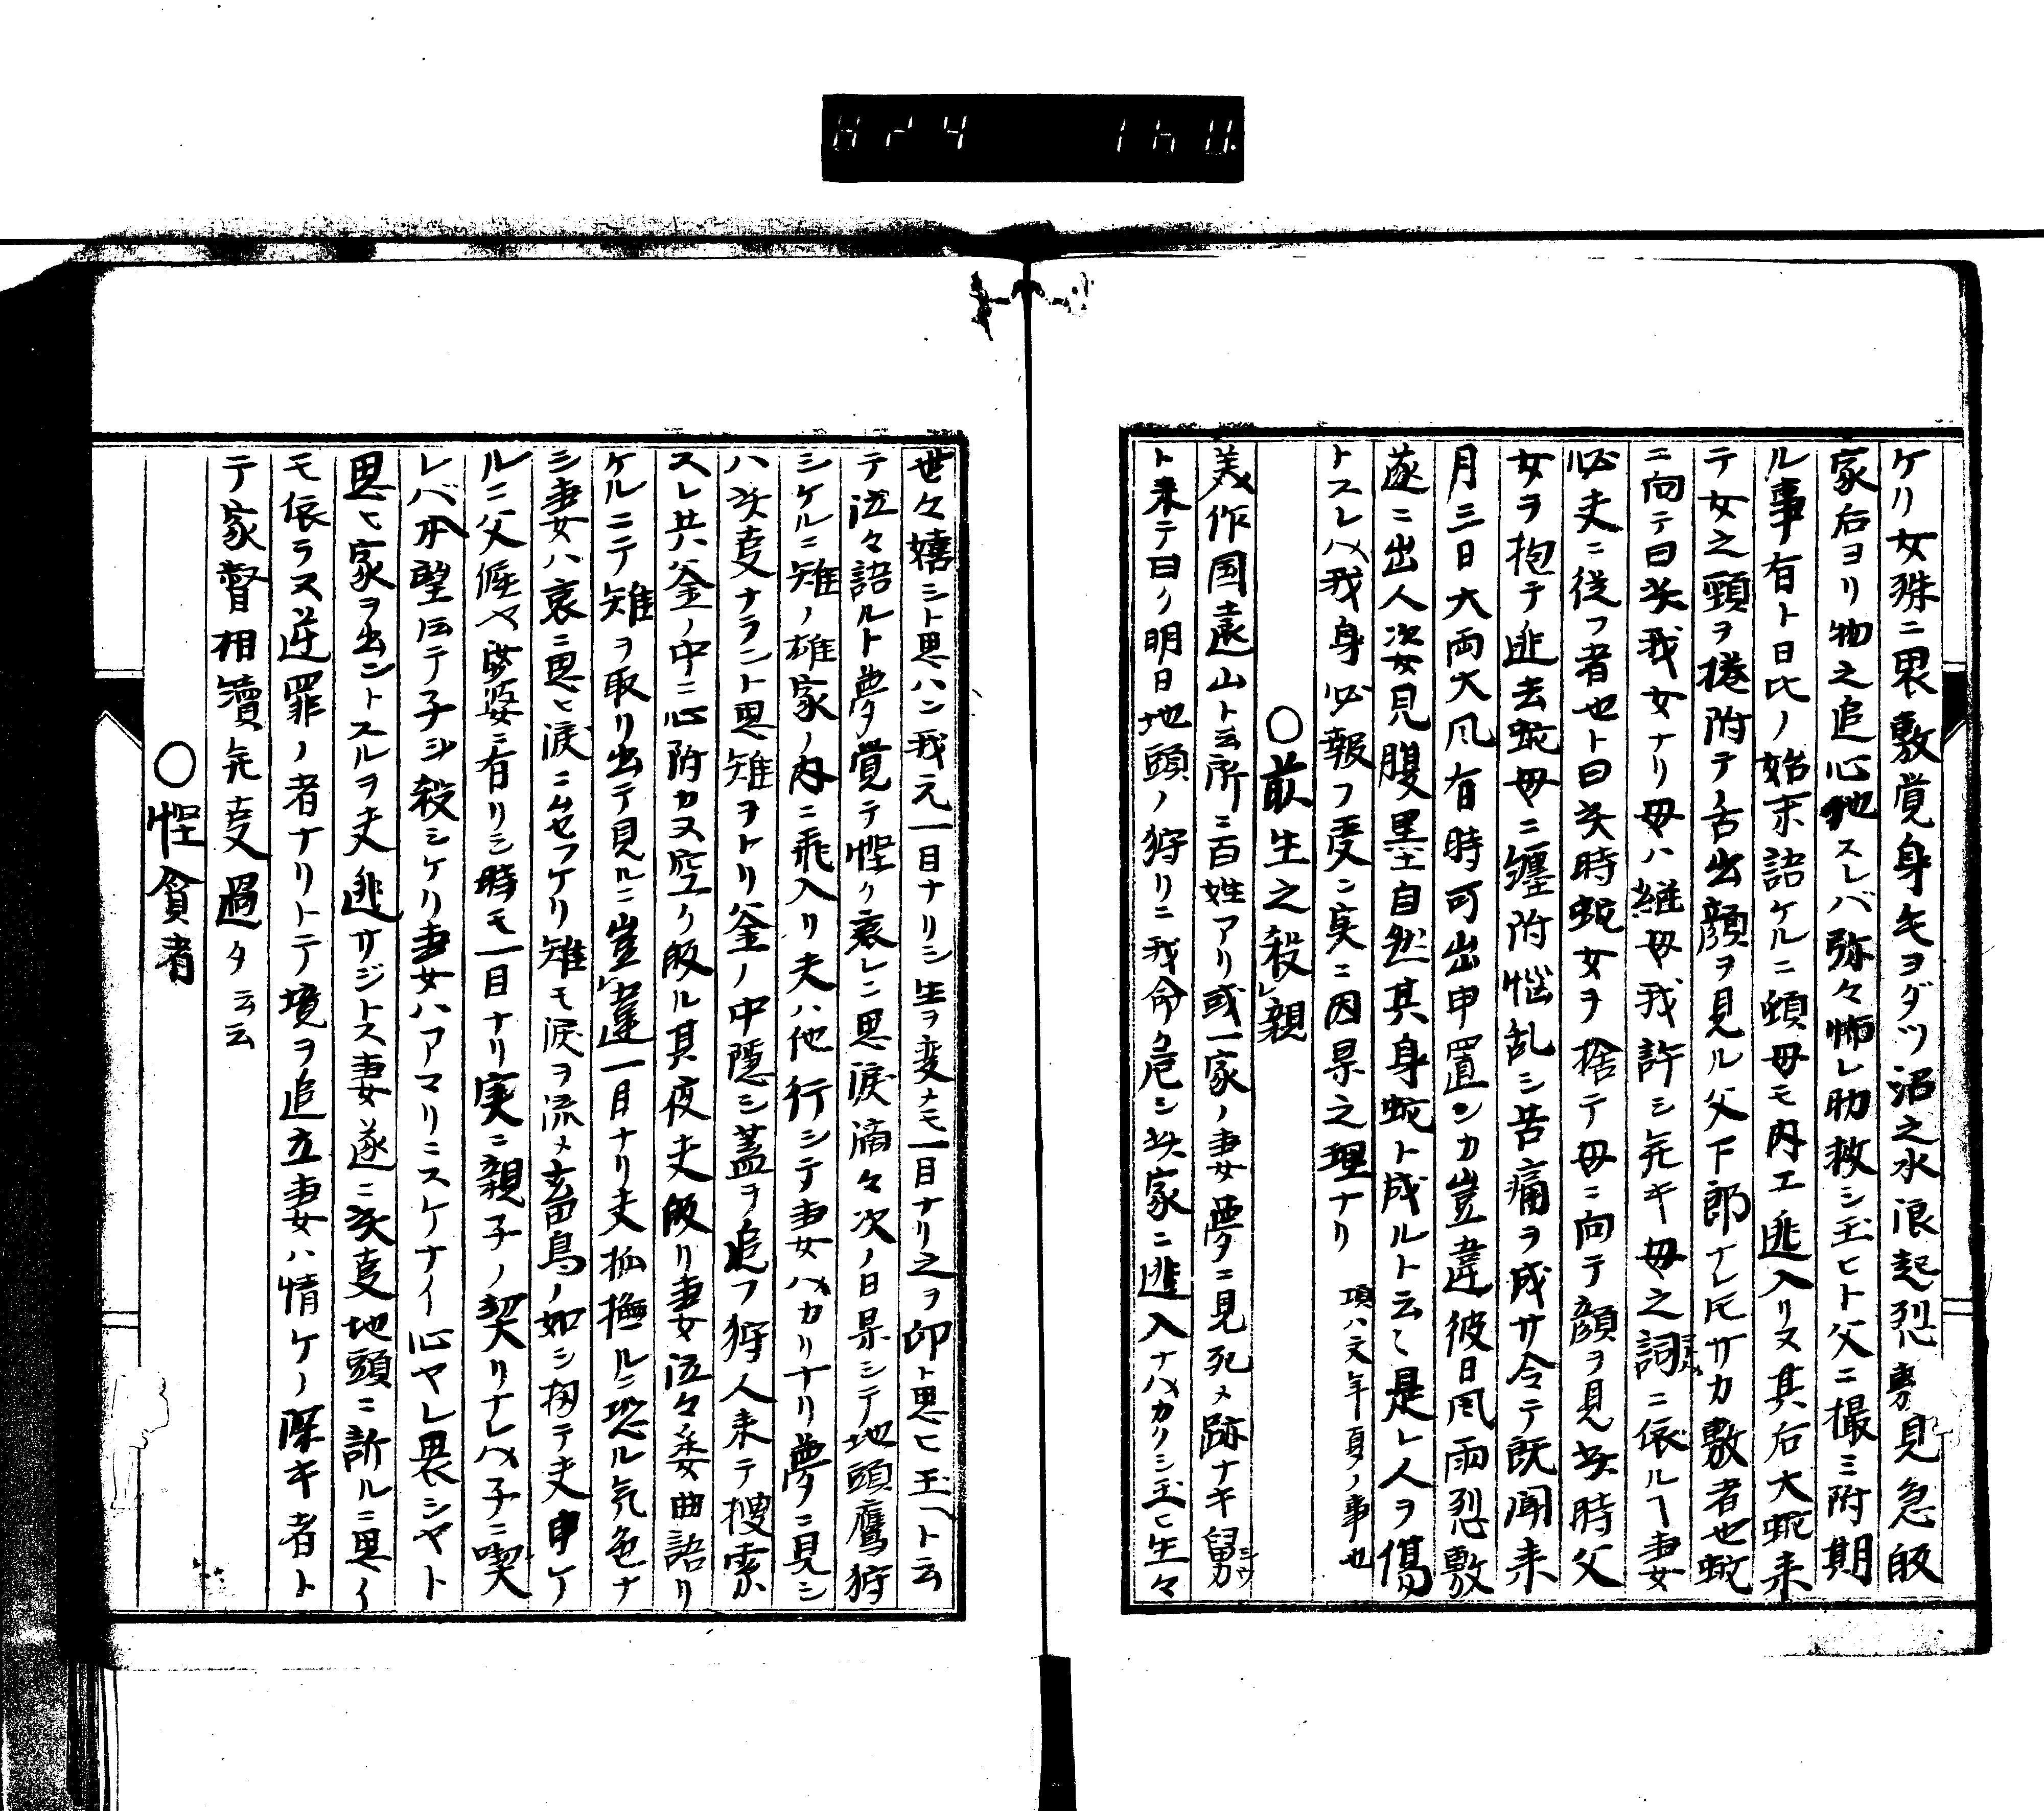 ケリ女殊ニ畏敷覚身毛ヲダツ沼之水浪起烈敷見急皈
家后ヨリ物之追心地スレバ弥々怖レ助救シ玉ヒト父ニ撮ミ附期
ル事有ト日比ノ始末語ケルニ頓母モ内エ逃入リヌ其后大蛇来
テ女之頸ヲ捲附テ舌出顔ヲ見ル父下郎ナレ𪜈サカ敷者也蛇
ニ向テ曰此我女ナリ母ハ継母我許シ无キ母之詞ニ依ルヿ妻女
必夫ニ従フ者也ト曰此時蛇女ヲ捨テ母ニ向テ顔ヲ見此時父
女ヲ抱テ逃去蛇母ニ纏附悩乱シ苦痛ヲ成サ令テ既聞来
月三日大雨大风有時可出申置ンカ豈違彼日風雨烈敷
遂ニ出人次女見腹墨自然其身蛇ト成ルト云々是レ人ヲ傷
トスレハ我身必報フ受ン寔ニ因果之理ナリ 項ハ文年夏ノ事也
〇前生之殺レ親
美作国遠山ト云所ニ百姓アリ或一家ノ妻女夢ニ見死メ跡ナキ舅シウ
ト来テ曰ク明日地頭ノ狩リニ我命危シ此家ニ逃入ナハカクシ玉ヒ生々
世々嬉シト思ハン我元一目ナリシ生ヲ変メモ一目ナリ之ヲ印ト思ヒ玉ヘト云
テ泣々語ルト夢覚テ悭ク哀レニ思涙滴々次ノ日果シテ地頭鷹狩
シケルニ雉ノ雄家ノ内ニ飛入リ夫ハ他行シテ妻女ハカリナリ夢ニ見シ
ハ此㕝ナラント思雉ヲトリ釜ノ中隠シ蓋ヲ追フ狩人来テ捜索
スレ共釜ノ中ニ心附カヌ空ク皈ル其夜夫皈リ妻女泣々委曲語リ
ケルニテ雉ヲ取リ出テ見ルニ豈違一目ナリ夫孤撫ルニ恐ル気色ナ
シ妻女ハ哀ニ思ヒ涙ニムセフケリ雉モ涙ヲ流メ畜鳥ノ如シ扨テ夫申ケ
ルニ父存娑婆ニ有リシ時モ一目ナリ実ニ親子ノ契リナレハ子ニ喫
レバ本望云テ子シ殺シケリ妻女ハアマリニスケナイ心ヤレ畏シヤト
思ヒ家ヲ出ントスルヲ夫逃サジトス妻遂ニ此㕝地頭ニ訴ルニ思イ
モ依ラヌ逆罪ノ者ナリトテ境ヲ追立妻女ハ情ケノ深キ者ト
テ家督相續先㕝過タ云云
〇悭貪者